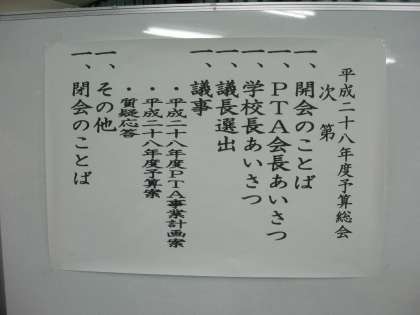 平成二十八年度予算総会
次第
一、開会のことば
一、PTA会長あいさつ
一、学校長あいさつ
一、議長選出
一、議事
・平成二十八年度PTA事業計画案
・平成二十八年度予算案
・質疑応答
一、その他
一、閉会のことば